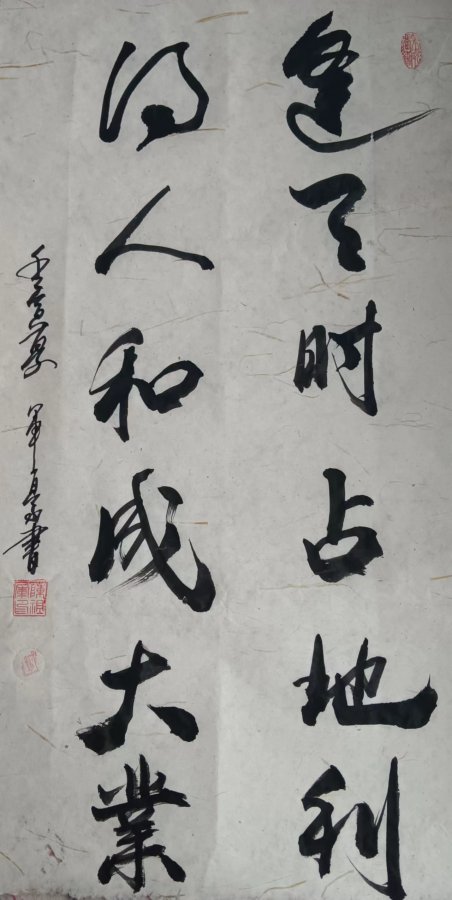 逢天时占地利
得人和成大業
壬寅夏 军良书